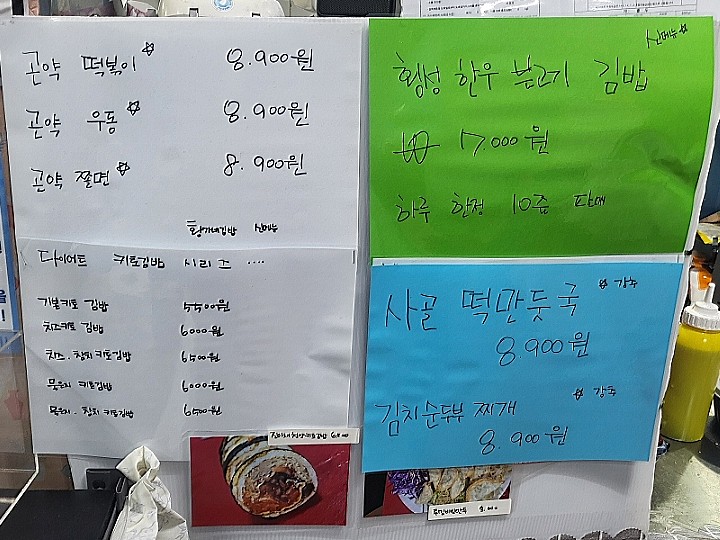 곤약 떡볶이 8.900원
곤약 우동 8.900원
곤약 쫄면 8.900원
황가네김밥 신메뉴
다이어트 키로김밥 시리즈 ....
기본키로 김밥 5500원
치즈키로 김밥 6000원
치즈.참치키로김밥 6500원
묵은지 키로김밥 6000원
묵은지.참치 키로김밥 6500원
신메뉴
횡성 한우 불고기 김밥
₩ 17.000원
하루 한정 10줄 판매
사골 떡만둣국 강추
8.900원
김치순두부 찌개 강추
8.900원